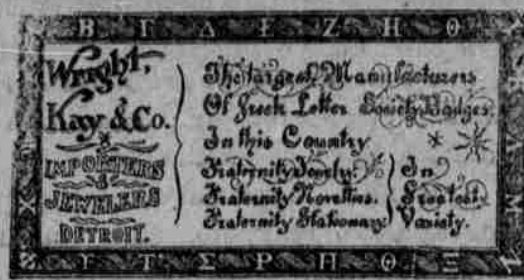 Β Γ Δ Ε Ζ Η Θ
Wright,
Kay & Co.
IMPORTERS
&
JEWELERS
DETROIT.
The Largest Manufacturers
Of Greek Letter Society Badges
In this Country
Fraternity Jewelry.
Fraternity Novelties.
Fraternity Stationary.
In
Greatest
Variety.
Υ Τ Σ Ρ Π Θ Ξ